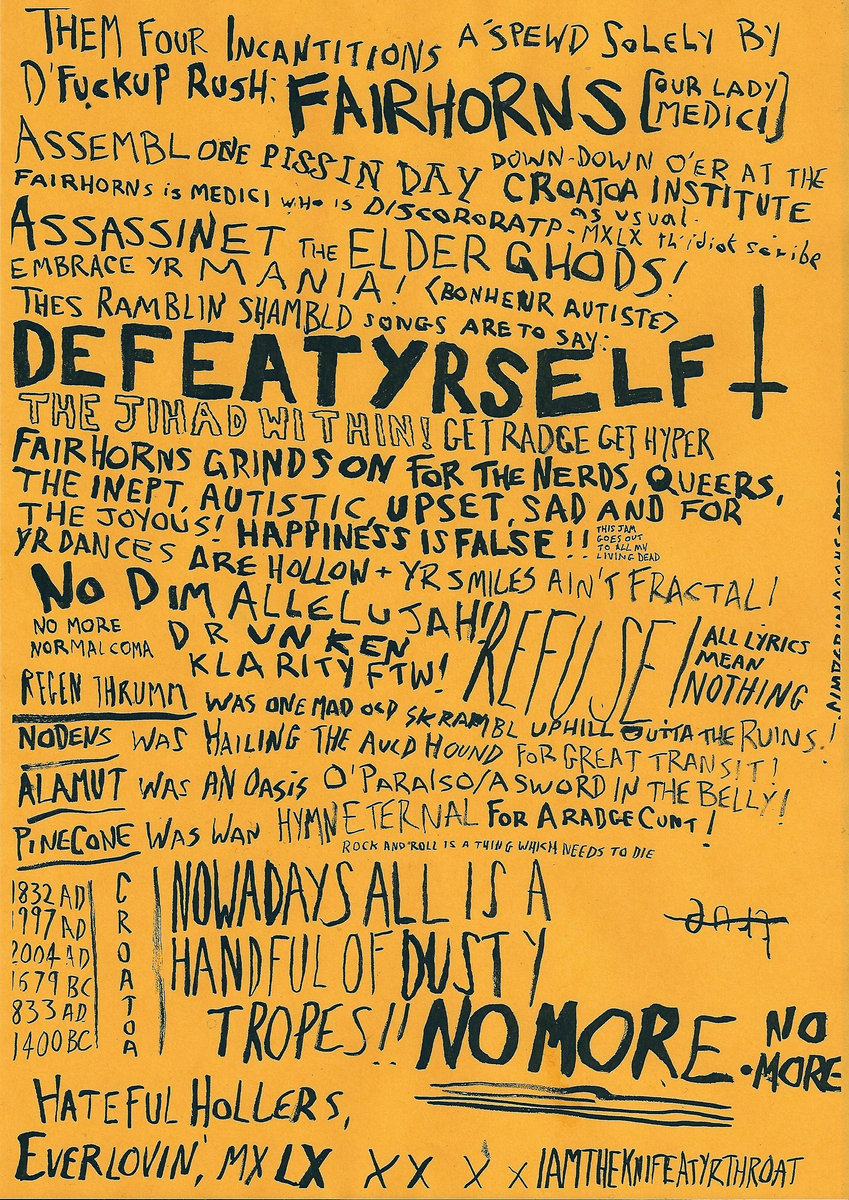 THEM FOUR INCANTITIONS A'SPEWD SOLELY BY
D'FUCKUP RUSH: FAIRHORNS [OUR LADY MEDICI]
ASSEMBL ONE PISSIN DAY DOWN-DOWN O'ER AT THE CROATOA INSTITUTE
FAIRHORNS is MEDICI WHO IS DISCORORATP- as usual. MXLX th'idiot scribe
ASSASSINET THE ELDER GHODS!
EMBRACE YR MANIA! <BONHEUR AUTISTE>
THES RAMBLIN SHAMBLD SONGS ARE TO SAY:
DEFEATYRSELF
THE JIHAD WITHIN! GET RADGE GET HYPER
FAIRHORNS GRINDS ON FOR THE NERDS, QUEERS,
THE INEPT, AUTISTIC, UPSET, SAD AND FOR
THE JOYOUS! HAPPINESS IS FALSE!!
THIS JAM
GOES OUT
TO ALL MY
LIVING DEAD
YR DANCES ARE HOLLOW + YR SMILES AIN'T FRACTAL!
NO DIM ALLELUJAH!
NO MORE
NORMAL COMA
DRUNKEN
KLARITY FTW!
REFUSE/
ALL LYRICS
MEAN
NOTHING
REGEN THRUMM WAS ONE MAD OLD SKRAMBL UPHILL OUTTA THE RUINS!
NODENS WAS HAILING THE AULD HOUND FOR GREAT TRANSIT!
ALAMUT WAS AN OASIS O'PARAISO/A SWORD IN THE BELLY!
PINECONE WAS WAN HYMN ETERNAL FOR A RADGE CUNT!
ROCK AND ROLL IS A THING WHICH NEEDS TO DIE
1832 AD
1997 AD
2004 AD
1679 BC
833 AD
1400 BC
CROATOA
NOWADAYS ALL IS A
HANDFUL OF DUSTY
TROPES!! NO MORE
NO
•MORE
HATEFUL HOLLERS,
EVERLOVIN', MXLX XX X X IAMTHEKNIFEATYRTHROAT